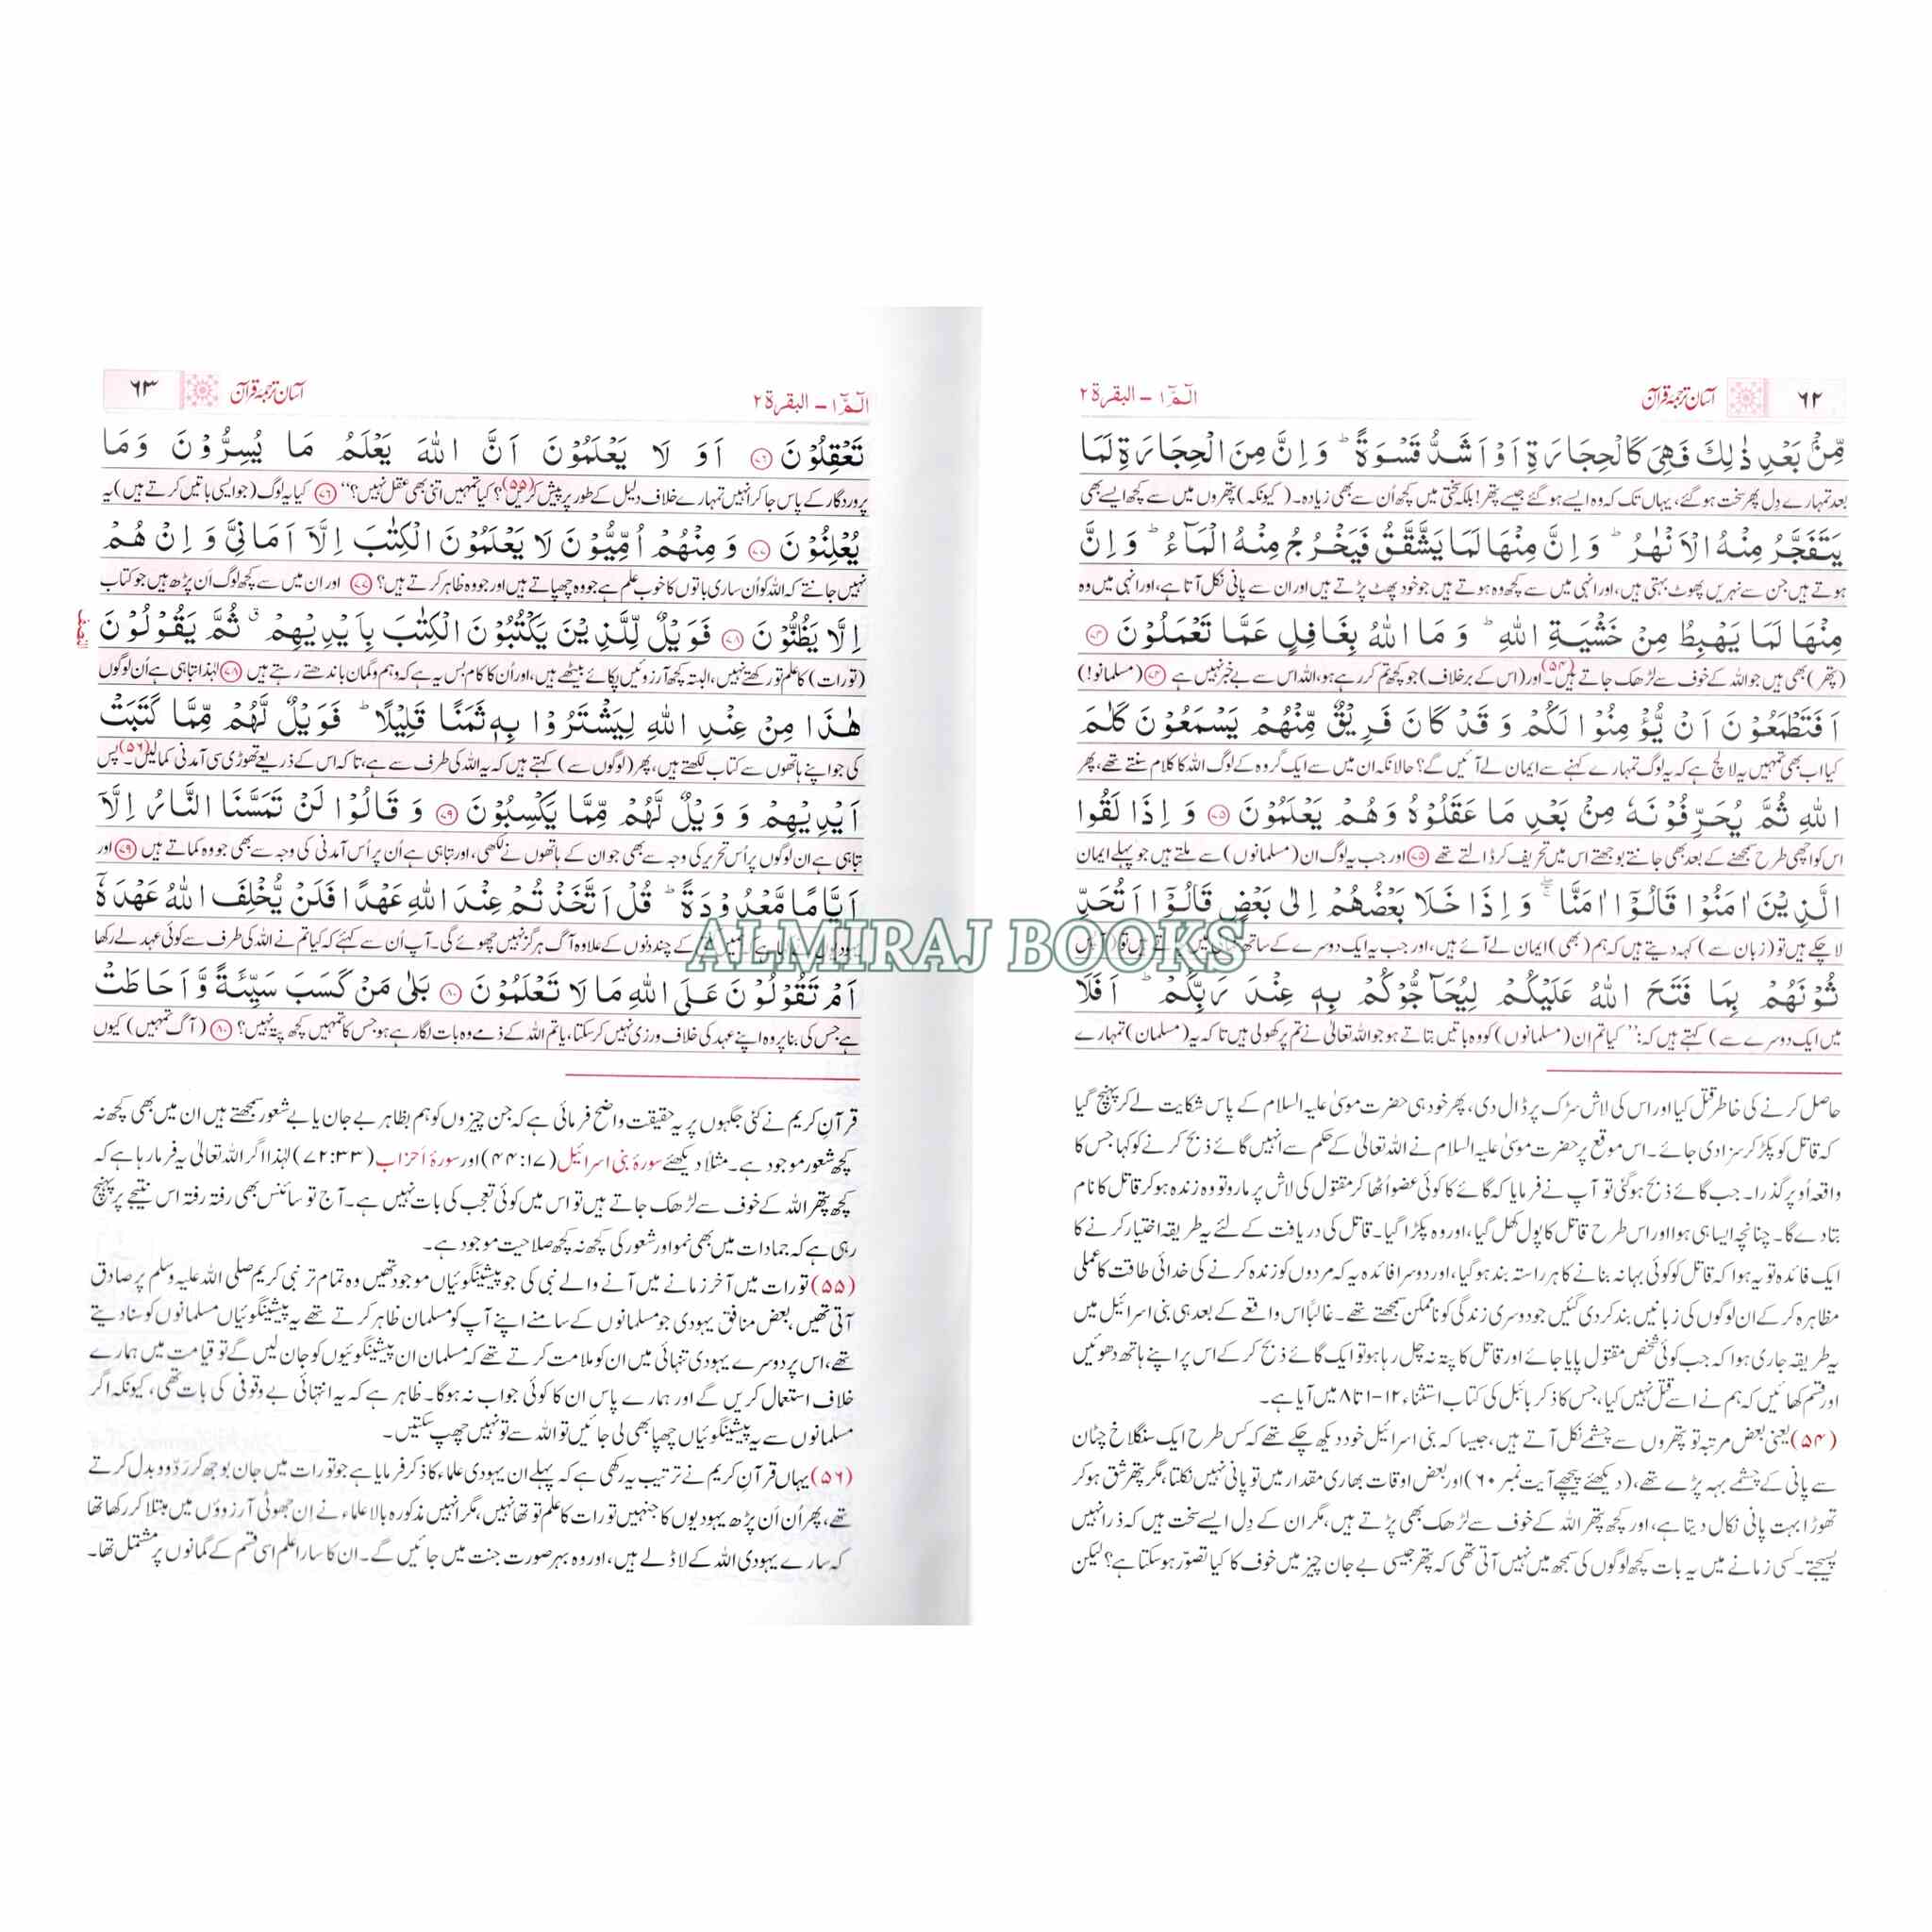 ۶۲
آسان ترجمۂ قرآن
الٓمّٓ ۱ – البقرۃ ۲
مِّنْۢ بَعْدِ ذٰلِكَ فَهِیَ كَالْحِجَارَةِ اَوْ اَشَدُّ قَسْوَةً ؕ وَ اِنَّ مِنَ الْحِجَارَةِ لَمَا
بعد تمہارے دِل پھر سخت ہوگئے، یہاں تک کہ وہ ایسے ہوگئے جیسے پتھر! بلکہ سختی میں کچھ اُن سے بھی زیادہ۔ (کیونکہ) پتھروں میں سے کچھ ایسے بھی
یَتَفَجَّرُ مِنْهُ الْاَنْهٰرُ ؕ وَ اِنَّ مِنْهَا لَمَا یَشَّقَّقُ فَیَخْرُجُ مِنْهُ الْمَآءُ ؕ وَ اِنَّ
ہوتے ہیں جن سے نہریں پھوٹ بہتی ہیں، اور انہی میں سے کچھ وہ ہوتے ہیں جو خود پھٹ پڑتے ہیں اور ان سے پانی نکل آتا ہے، اور انہی میں وہ
مِنْهَا لَمَا یَهْبِطُ مِنْ خَشْیَةِ اللهِ ؕ وَ مَا اللهُ بِغَافِلٍ عَمَّا تَعْمَلُوْنَ ﴿۷۴﴾
(پتھر) بھی ہیں جو اللہ کے خوف سے لڑھک جاتے ہیں۔(۵۴) اور (اس کے برخلاف) جو کچھ تم کر رہے ہو، اللہ اس سے بے خبر نہیں ہے ﴿۷۴﴾ (مسلمانو!)
اَفَتَطْمَعُوْنَ اَنْ یُّؤْمِنُوْا لَكُمْ وَ قَدْ كَانَ فَرِیْقٌ مِّنْهُمْ یَسْمَعُوْنَ كَلٰمَ
کیا اب بھی تمہیں یہ لالچ ہے کہ یہ لوگ تمہارے کہنے سے ایمان لے آئیں گے؟ حالانکہ ان میں سے ایک گروہ کے لوگ اللہ کا کلام سنتے تھے، پھر
اللهِ ثُمَّ یُحَرِّفُوْنَهٗ مِنْۢ بَعْدِ مَا عَقَلُوْهُ وَ هُمْ یَعْلَمُوْنَ ﴿۷۵﴾ وَ اِذَا لَقُوا
اس کو اچھی طرح سمجھنے کے بعد بھی جانتے بوجھتے اس میں تحریف کر ڈالتے تھے ﴿۷۵﴾ اور جب یہ لوگ ان (مسلمانوں) سے ملتے ہیں جو پہلے ایمان
الَّذِیْنَ اٰمَنُوْا قَالُوْۤا اٰمَنَّا ۖۚ وَ اِذَا خَلَا بَعْضُهُمْ اِلٰى بَعْضٍ قَالُوْۤا اَتُحَدِّ
لا چکے ہیں تو (زبان سے) کہہ دیتے ہیں کہ ہم (بھی) ایمان لے آئے ہیں، اور جب یہ ایک دوسرے کے ساتھ
ثُوْنَهُمْ بِمَا فَتَحَ اللهُ عَلَیْكُمْ لِیُحَآجُّوْكُمْ بِهٖ عِنْدَ رَبِّكُمْ ؕ اَفَلَا
میں ایک دوسرے سے) کہتے ہیں کہ: ’’کیا تم اِن (مسلمانوں) کو وہ باتیں بتاتے ہو جو اللہ تعالیٰ نے تم پر کھولی ہیں تاکہ یہ (مسلمان) تمہارے
حاصل کرنے کی خاطر قتل کیا اور اس کی لاش سڑک پر ڈال دی، پھر خود ہی حضرت موسیٰ علیہ السلام کے پاس شکایت لے کر پہنچ گیا
کہ قاتل کو پکڑ کر سزا دی جائے۔ اس موقع پر حضرت موسیٰ علیہ السلام نے اللہ تعالیٰ کے حکم سے انہیں گائے ذبح کرنے کو کہا جس کا
واقعہ اُوپر گذرا۔ جب گائے ذبح ہوگئی تو آپ نے فرمایا کہ گائے کا کوئی عضو اُٹھا کر مقتول کی لاش پر مارو تو وہ زندہ ہوکر قاتل کا نام
بتادے گا۔ چنانچہ ایسا ہی ہوا اور اس طرح قاتل کا پول کھل گیا، اور وہ پکڑا گیا۔ قاتل کی دریافت کے لئے یہ طریقہ اختیار کرنے کا
ایک فائدہ تو یہ ہوا کہ قاتل کو کوئی بہانہ بنانے کا ہر راستہ بند ہوگیا، اور دوسرا فائدہ یہ کہ مردوں کو زندہ کرنے کی خدائی طاقت کا عملی
مظاہرہ کرکے ان لوگوں کی زبانیں بند کردی گئیں جو دوسری زندگی کو ناممکن سمجھتے تھے۔ غالباً اس واقعے کے بعد ہی بنی اسرائیل میں
یہ طریقہ جاری ہوا کہ جب کوئی شخص مقتول پایا جائے اور قاتل کا پتہ نہ چل رہا ہو تو ایک گائے ذبح کرکے اس پر اپنے ہاتھ دھوئیں
اور قسم کھائیں کہ ہم نے اسے قتل نہیں کیا، جس کا ذکر بائبل کی کتاب استثناء ۱۲–۱ تا ۸ میں آیا ہے۔
(۵۴) یعنی بعض مرتبہ تو پتھروں سے چشمے نکل آتے ہیں، جیسا کہ بنی اسرائیل خود دیکھ چکے تھے کہ کس طرح ایک سنگلاخ چٹان
سے پانی کے چشمے بہہ پڑے تھے، (دیکھئے پیچھے آیت نمبر ۶۰) اور بعض اوقات بھاری مقدار میں تو پانی نہیں نکلتا، مگر پتھر شق ہوکر
تھوڑا بہت پانی نکال دیتا ہے، اور کچھ پتھر اللہ کے خوف سے لڑھک بھی پڑتے ہیں، مگر ان کے دِل ایسے سخت ہیں کہ ذرا نہیں
پسیجتے۔ کسی زمانے میں یہ بات کچھ لوگوں کی سمجھ میں نہیں آتی تھی کہ پتھر جیسی بے جان چیز میں خوف کا کیا تصوّر ہوسکتا ہے؟ لیکن
الٓمّٓ ۱ – البقرۃ ۲
آسان ترجمۂ قرآن
۶۳
تَعْقِلُوْنَ ﴿۷۶﴾ اَوَ لَا یَعْلَمُوْنَ اَنَّ اللهَ یَعْلَمُ مَا یُسِرُّوْنَ وَ مَا
پروردگار کے پاس جاکر انہیں تمہارے خلاف دلیل کے طور پر پیش کریں؟(۵۵) کیا تمہیں اتنی بھی عقل نہیں؟‘‘ ﴿۷۶﴾ کیا یہ لوگ (جو ایسی باتیں کرتے ہیں) یہ
یُعْلِنُوْنَ ﴿۷۷﴾ وَ مِنْهُمْ اُمِّیُّوْنَ لَا یَعْلَمُوْنَ الْكِتٰبَ اِلَّاۤ اَمَانِیَّ وَ اِنْ هُمْ
نہیں جانتے کہ اللہ کو اُن ساری باتوں کا خوب علم ہے جو وہ چھپاتے ہیں اور جو وہ ظاہر کرتے ہیں؟ ﴿۷۷﴾ اور ان میں سے کچھ لوگ اَن پڑھ ہیں جو کتاب
اِلَّا یَظُنُّوْنَ ﴿۷۸﴾ فَوَیْلٌ لِّلَّذِیْنَ یَكْتُبُوْنَ الْكِتٰبَ بِاَیْدِیْهِمْ ۗ ثُمَّ یَقُوْلُوْنَ
النصف
(تورات) کا علم تو رکھتے نہیں، البتہ کچھ آرزوئیں پکائے بیٹھے ہیں، اور اُن کا کام بس یہ ہے کہ وہم و گمان باندھتے رہتے ہیں ﴿۷۸﴾ لہٰذا تباہی ہے اُن لوگوں
هٰذَا مِنْ عِنْدِ اللهِ لِیَشْتَرُوْا بِهٖ ثَمَنًا قَلِیْلًا ؕ فَوَیْلٌ لَّهُمْ مِّمَّا كَتَبَتْ
کی جو اپنے ہاتھوں سے کتاب لکھتے ہیں، پھر (لوگوں سے) کہتے ہیں کہ یہ اللہ کی طرف سے ہے، تاکہ اس کے ذریعے تھوڑی سی آمدنی کمالیں۔(۵۶) پس
اَیْدِیْهِمْ وَ وَیْلٌ لَّهُمْ مِّمَّا یَكْسِبُوْنَ ﴿۷۹﴾ وَ قَالُوْا لَنْ تَمَسَّنَا النَّارُ اِلَّاۤ
تباہی ہے ان لوگوں پر اُس تحریر کی وجہ سے بھی جو ان کے ہاتھوں نے لکھی، اور تباہی ہے اُن پر اُس آمدنی کی وجہ سے بھی جو وہ کماتے ہیں ﴿۷۹﴾ اور
اَیَّامًا مَّعْدُوْدَةً ؕ قُلْ اَتَّخَذْتُمْ عِنْدَ اللهِ عَهْدًا فَلَنْ یُّخْلِفَ اللهُ عَهْدَهٗۤ
کے چند دنوں کے علاوہ آگ ہرگز نہیں چھوئے گی۔ آپ اُن سے کہئے کہ کیا تم نے اللہ کی طرف سے کوئی عہد لے رکھا
ALMIRAJ BOOKS
اَمْ تَقُوْلُوْنَ عَلَى اللهِ مَا لَا تَعْلَمُوْنَ ﴿۸۰﴾ بَلٰى مَنْ كَسَبَ سَیِّئَةً وَّ اَحَاطَتْ
ہے جس کی بنا پر وہ اپنے عہد کی خلاف ورزی نہیں کرسکتا، یا تم اللہ کے ذمے وہ بات لگا رہے ہو جس کا تمہیں کچھ پتہ نہیں؟ ﴿۸۰﴾ (آگ تمہیں) کیوں
قرآنِ کریم نے کئی جگہوں پر یہ حقیقت واضح فرمائی ہے کہ جن چیزوں کو ہم بظاہر بے جان یا بے شعور سمجھتے ہیں ان میں بھی کچھ نہ
کچھ شعور موجود ہے۔ مثلاً دیکھئے سورۂ بنی اسرائیل (۱۷:۴۴) اور سورۂ اَحزاب (۳۳:۷۲) لہٰذا اگر اللہ تعالیٰ یہ فرما رہا ہے کہ
کچھ پتھر اللہ کے خوف سے لڑھک جاتے ہیں تو اس میں کوئی تعجب کی بات نہیں ہے۔ آج تو سائنس بھی رفتہ رفتہ اس نتیجے پر پہنچ
رہی ہے کہ جمادات میں بھی نمو اور شعور کی کچھ نہ کچھ صلاحیت موجود ہے۔
(۵۵) تورات میں آخر زمانے میں آنے والے نبی کی جو پیشینگوئیاں موجود تھیں وہ تمام تر نبی کریم صلی اللہ علیہ وسلم پر صادق
آتی تھیں، بعض منافق یہودی جو مسلمانوں کے سامنے اپنے آپ کو مسلمان ظاہر کرتے تھے یہ پیشینگوئیاں مسلمانوں کو سنادیتے
تھے، اس پر دوسرے یہودی تنہائی میں ان کو ملامت کرتے تھے کہ مسلمان ان پیشینگوئیوں کو جان لیں گے تو قیامت میں ہمارے
خلاف استعمال کریں گے اور ہمارے پاس ان کا کوئی جواب نہ ہوگا۔ ظاہر ہے کہ یہ انتہائی بے وقوفی کی بات تھی، کیونکہ اگر
مسلمانوں سے یہ پیشینگوئیاں چھپا بھی لی جائیں تو اللہ سے تو نہیں چھپ سکتیں۔
(۵۶) یہاں قرآنِ کریم نے ترتیب یہ رکھی ہے کہ پہلے ان یہودی علماء کا ذکر فرمایا ہے جو تورات میں جان بوجھ کر رَدّوبدل کرتے
تھے، پھر اُن اَن پڑھ یہودیوں کا جنہیں تورات کا علم تو تھا نہیں، مگر انہیں مذکورہ بالا علماء نے اِن جھوٹی آرزوؤں میں مبتلا کر رکھا تھا
کہ سارے یہودی اللہ کے لاڈلے ہیں، اور وہ بہر صورت جنت میں جائیں گے۔ ان کا سارا علم اسی قسم کے گمانوں پر مشتمل تھا۔